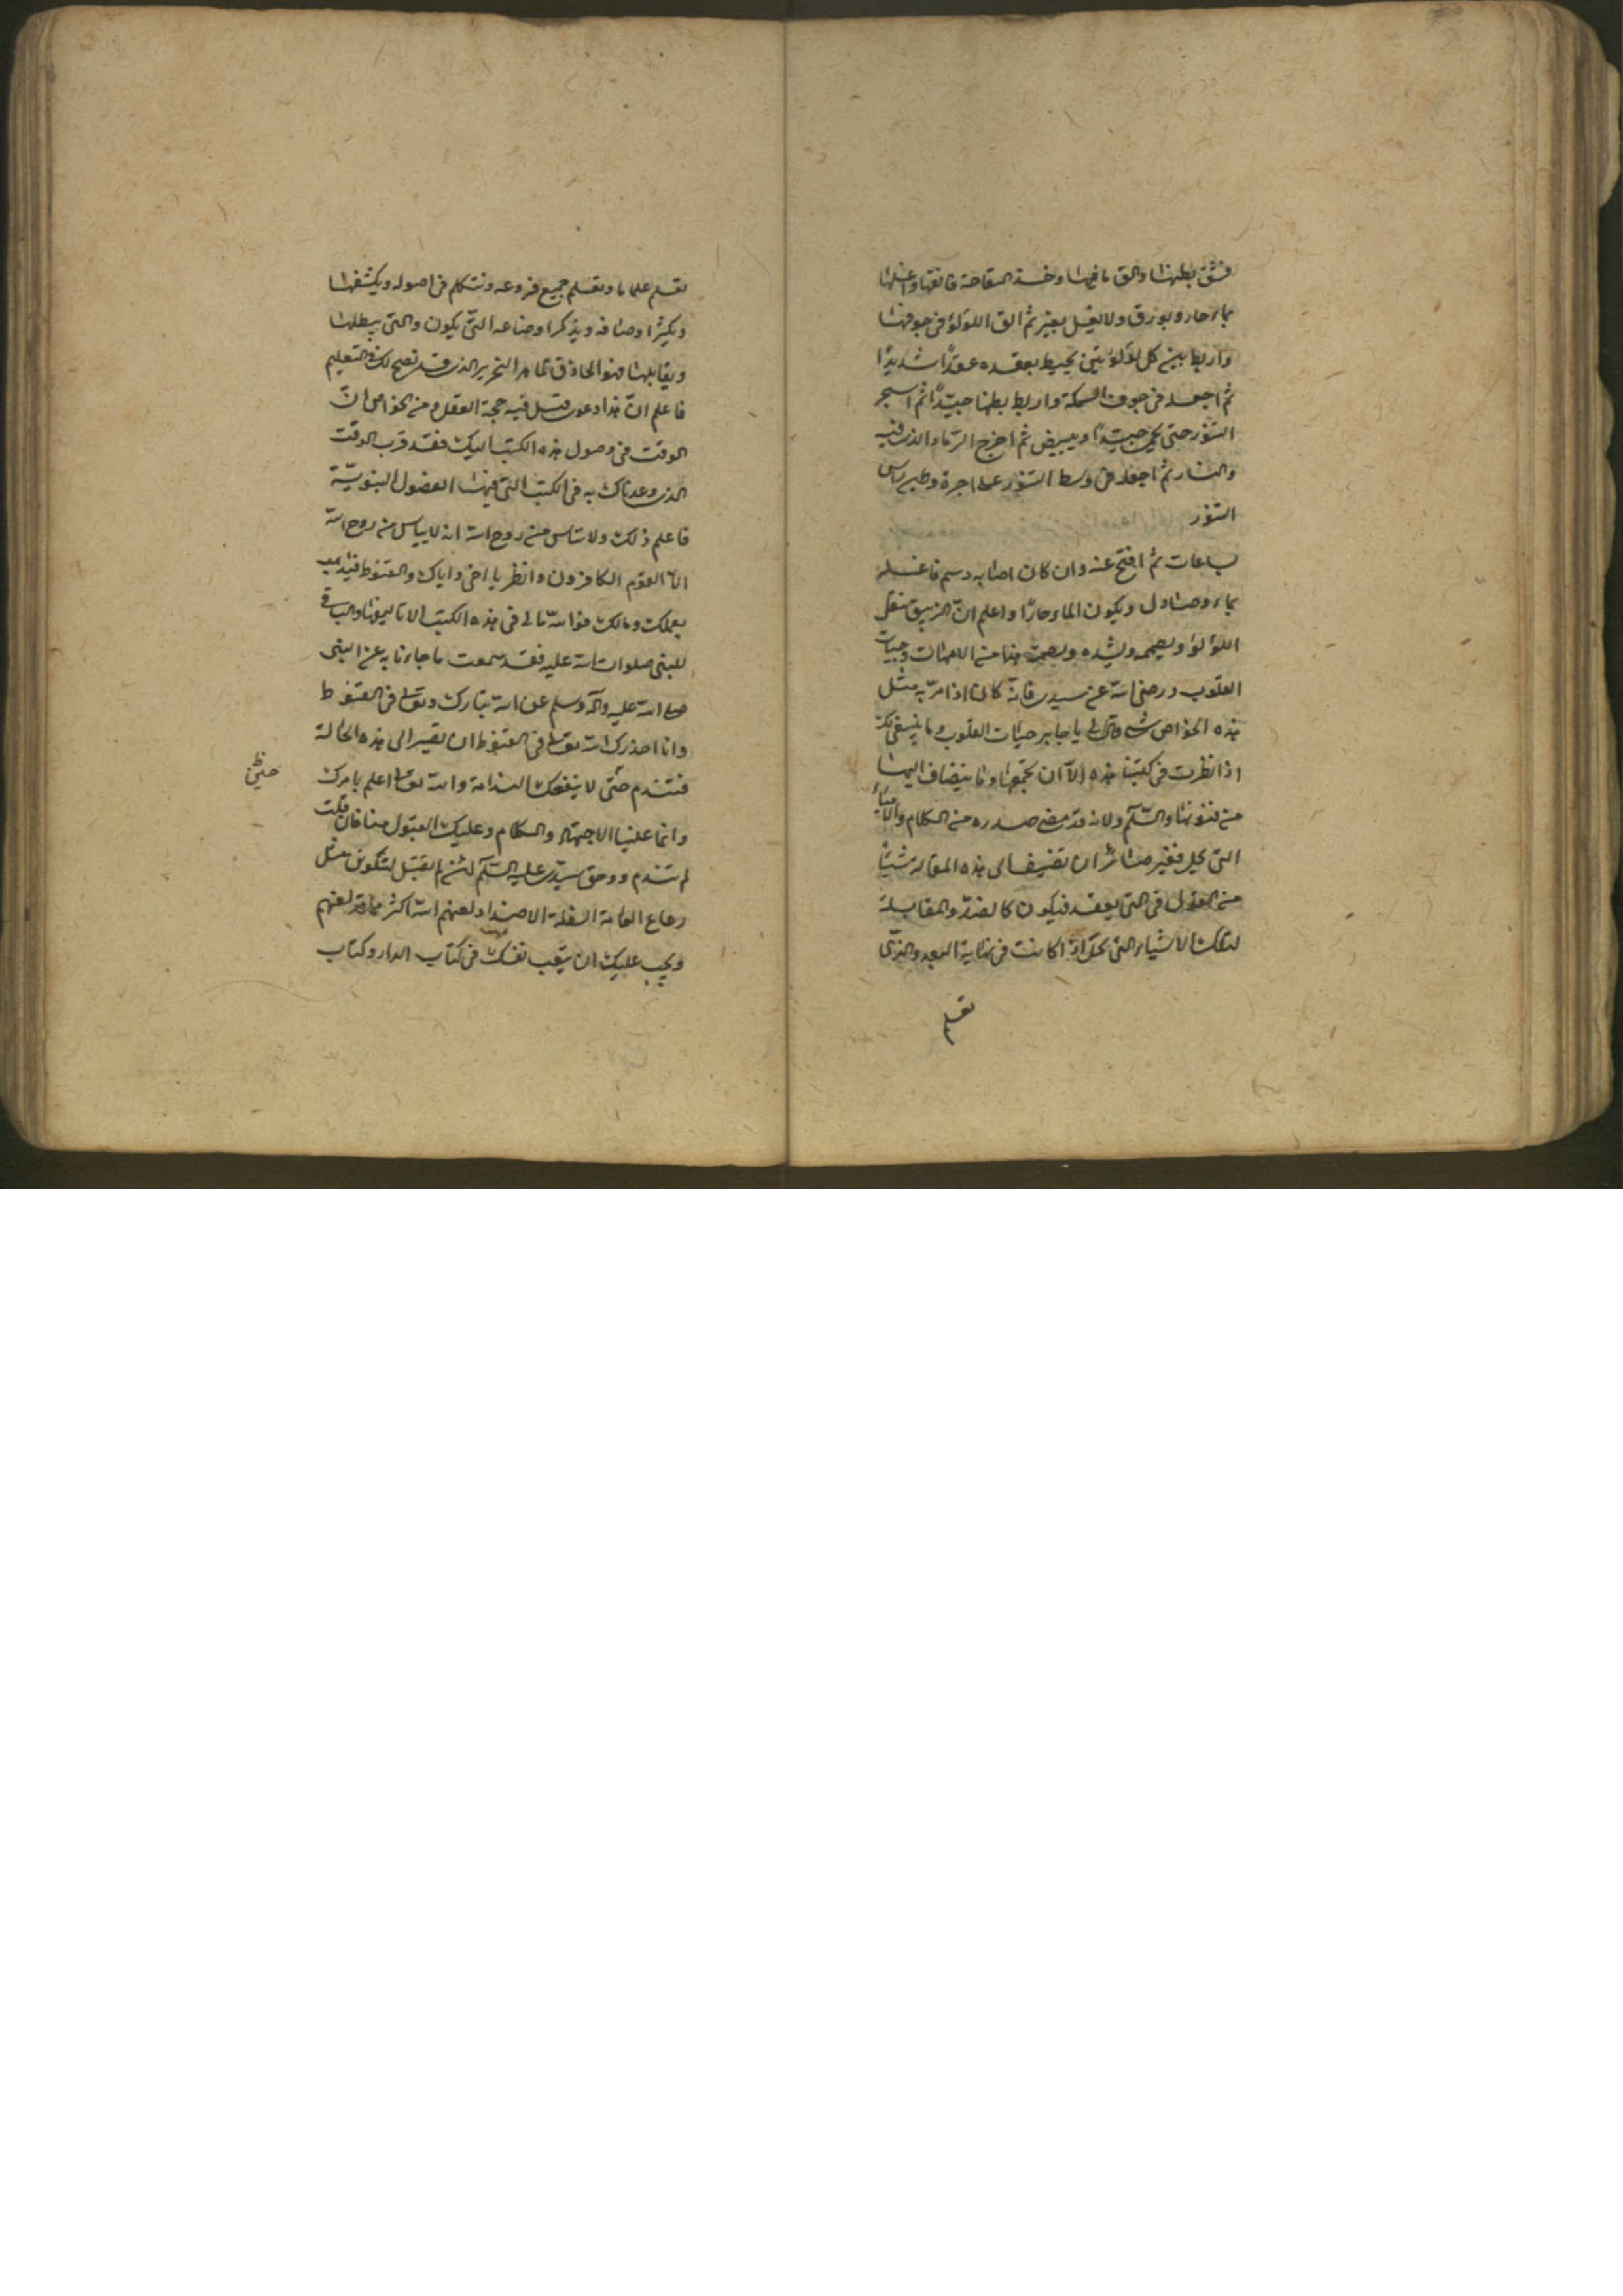 فشق بطنها والق ما فيها وخذ النقاحة فانقها واغسلها
بماء حار وبورق ولا يغسل بغيره ثم الق اللولو فى جوفها
واربط بين كل لؤلؤتين بخيط بعقده عقدًا شديدًا
ثم اجعله فى جوف السمكة واربط بطنها جيدًا ثم اسجر
التنور حتى يحمى جيدًا ويبيض ثم اخرج الرماد الذى فيه
والنار ثم اجعله فى وسط التنور على اجرة وطين راس
التنور
ساعات ثم افتح عنه وان كان اصابه دسم فاغسله
بماء وصابون ويكون الماء حارًا واعلم ان الزيبق يفعل
اللؤلؤ ويصممه ويشده ويصمت هذا من الامهات وحيات
القلوب ورضى الله عن سيدى فانه كان اذا مرّ به مثل
هذه الخواص شى قال لى يا جابر حيات القلوب وما ينبغى لك
اذا نظرت فى كتبنا هذه الا ان تجمعها وما ينضاف اليها
من فنونها والسلم ولانه قد مضى صدره من الكلام والاشياء
التى تحل فغير ضائر ان نضيف الى هذه المقالة شيئًا
من القول فى التى يعقد فيكون كالضد والمقابلة
لتلك الاشياء التى تحل اذا كانت فى نهاية البعد والذى
تعلم
تعلم علما ما ويعلم جميع فروعه ونتكلم فى اصوله ويكشفها
ويكثر اوصافه ويذكر اوضاعه التى يكون والتى يبطلها
ويقابلها فهو الحاذق الماهر النحرير الذى قد نصح لك فى التعليم
فاعلم ان هذا دعوى قبل فيه حجة العقل ومن الخواص ان
الوقت فى وصول هذه الكتب اليك فقد قرب الوقت
الذى وعدناك به فى الكتب التى فيها الفصول النبوية
فاعلم ذلك ولا تياس من روح الله انه لا يياس من روح الله
الا القوم الكافرون وانظر يا اخى واياك والقنوط فيذهب
بعملك ومالك فوالله ما لى فى هذه الكتب الا تاليفها والباقى
للنبى صلوات الله عليه فقد سمعت ما جاءنا به عن النبى
صلى الله عليه وآله وسلم عن الله تبارك وتعالى فى القنوط
وانا احذرك الله تعالى فى القنوط ان تصير الى هذه الحالة
فتندم حتى لا ينفعك الندامة والله تعالى اعلم بامرك
حينئذ
وانما علينا الاجتهاد والكلام وعليك القبول منا فان قبلت
لم تندم ووحق سيدى عليه السلم لئن لم تقبل لتكونن مثل
رعاع العامة السفلة الاضداد لعنهم الله اكثر مما قد لعنهم
ويجب عليك ان يتعب نفسك فى كتاب الدار وكتاب